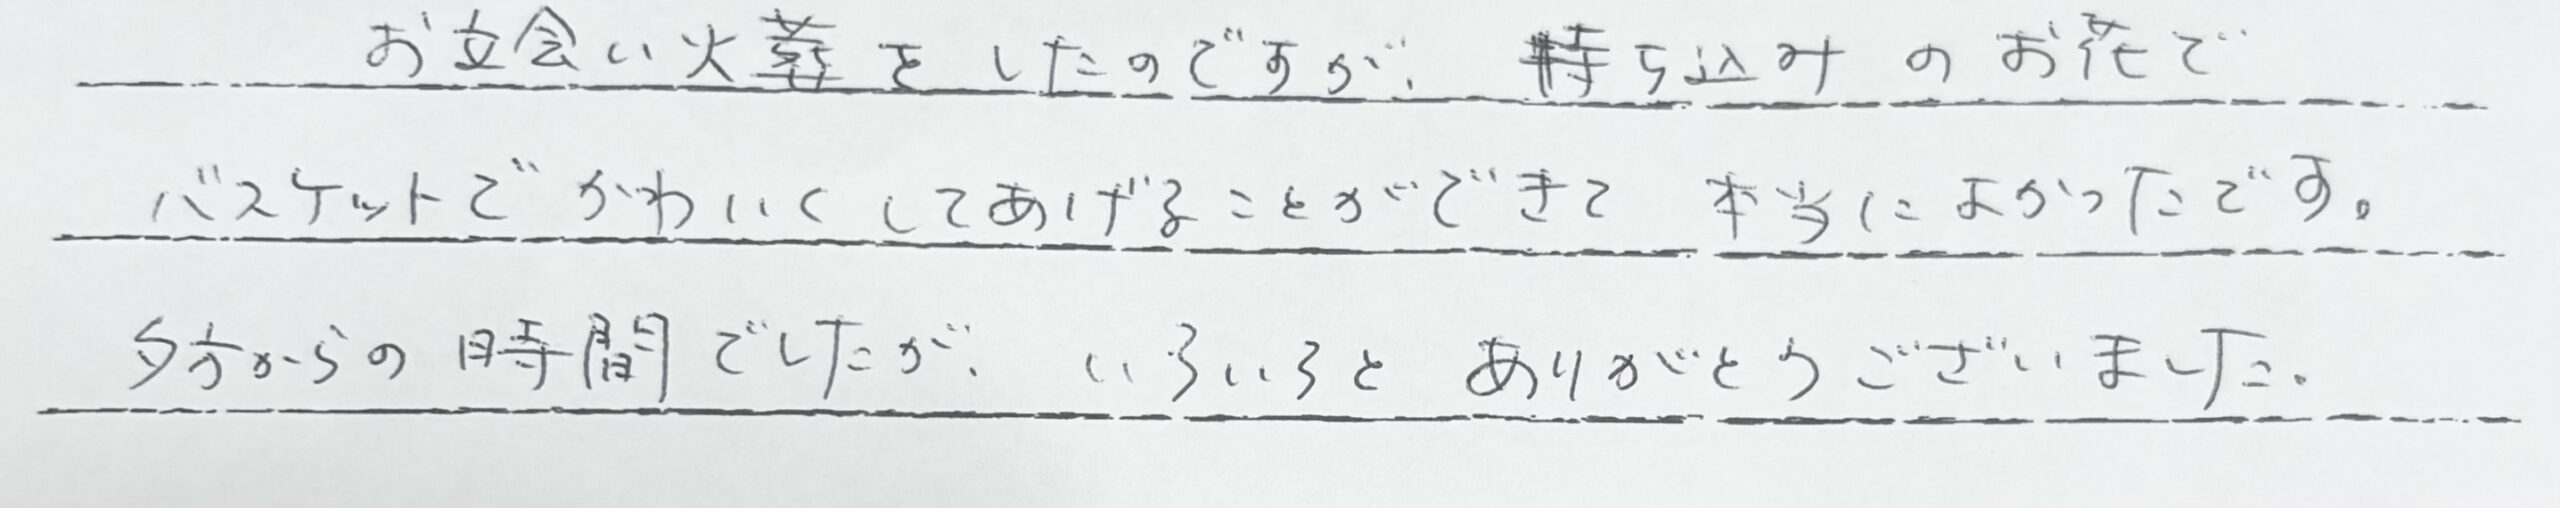 お立会い火葬をしたのですが、持ち込みのお花で
バスケットでかわいくしてあげることができて本当によかったです。
夕方からの時間でしたが、いろいろとありがとうございました。